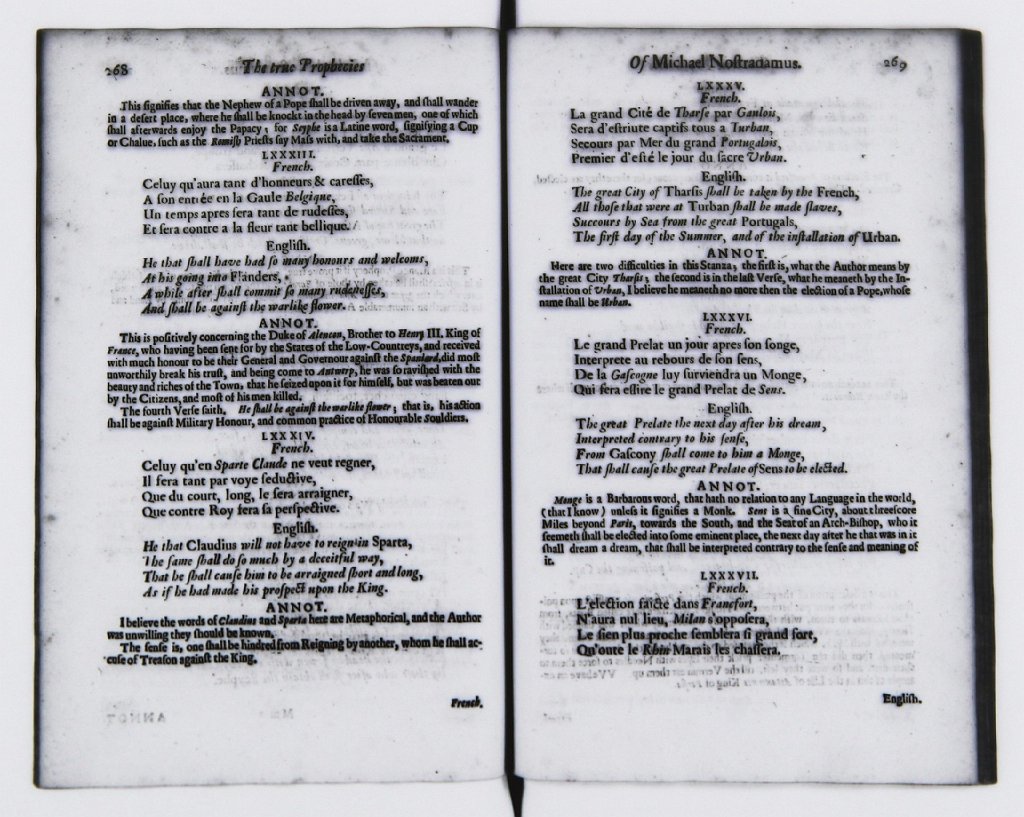 268 The true Prophecies
ANNOT.
This signifies that the Nephew of a Pope shall be driven away, and shall wander
in a desert place, where he shall be knockt in the head by seven men, one of which
shall afterwards enjoy the Papacy; for Scyphe is a Latine word, signifying a Cup
or Chalue, such as the Romish Priests say Mass with, and take the Sacrament.
LXXXIII.
French.
Celuy qu'aura tant d'honneurs & caresses,
A son entrée en la Gaule Belgique,
Un temps apres fera tant de rudesses,
Et sera contre a la fleur tant bellique.
English.
He that shall have had so many honours and welcoms,
At his going into Flanders,
A while after shall commit so many rudenesses,
And shall be against the warlike flower.
ANNOT.
This is positively concerning the Duke of Alencon, Brother to Henry III. King of
France, who having been sent for by the States of the Low-Countreys, and received
with much honour to be their General and Governour against the Spaniard, did most
unworthily break his trust, and being come to Antwerp, he was so ravished with the
beauty and riches of the Town, that he seized upon it for himself, but was beaten out
by the Citizens, and most of his men killed.
The fourth Verse saith, He shall be against the warlike flower; that is, his action
shall be against Military Honour, and common practice of Honourable Souldiers.
LXXXIV.
French.
Celuy qu'en Sparte Claude ne veut regner,
Il fera tant par voye seductive,
Que du court, long, le fera arraigner,
Que contre Roy fera sa perspective.
English.
He that Claudius will not have to reign in Sparta,
The same shall do so much by a deceitful way,
That he shall cause him to be arraigned short and long,
As if he had made his prospect upon the King.
ANNOT.
I believe the words of Claudius and Sparta here are Metaphorical, and the Author
was unwilling they should be known.
The sense is, one shall be hindred from Reigning by another, whom he shall ac-
cuse of Treason against the King.
French.
Of Michael Nostradamus. 269
LXXXV.
French.
La grand Cité de Tharse par Gaulois,
Sera d'estruite captifs tous a Turban,
Secours par Mer du grand Portugalois,
Premier d'esté le jour du sacre Urban.
English.
The great City of Tharsis shall be taken by the French,
All those that were at Turban shall be made slaves,
Succours by Sea from the great Portugals,
The first day of the Summer, and of the installation of Urban.
ANNOT.
Here are two difficulties in this Stanza; the first is, what the Author means by
the great City Tharsis; the second is in the last Verse, what he meaneth by the In-
stallation of Urban, I believe he meaneth no more then the election of a Pope, whose
name shall be Urban.
LXXXVI.
French.
Le grand Prelat un jour apres son songe,
Interprete au rebours de son sens,
De la Gascogne luy surviendra un Monge,
Qui fera eslire le grand Prelat de Sens.
English.
The great Prelate the next day after his dream,
Interpreted contrary to his sense,
From Gascony shall come to him a Monge,
That shall cause the great Prelate of Sens to be elected.
ANNOT.
Monge is a Barbarous word, that hath no relation to any Language in the world,
(that I know) unless it signifies a Monk. Sens is a fine City, about threescore
Miles beyond Paris, towards the South, and the Seat of an Arch-Bishop, who it
seemeth shall be elected into some eminent place, the next day after he that was in it
shall dream a dream, that shall be interpreted contrary to the sense and meaning of
it.
LXXXVII.
French.
L'election faicte dans Francfort,
N'aura nul lieu, Milan s'opposera,
Le sien plus proche semblera si grand fort,
Qu'oute le Rhin Marais les chassera.
English.